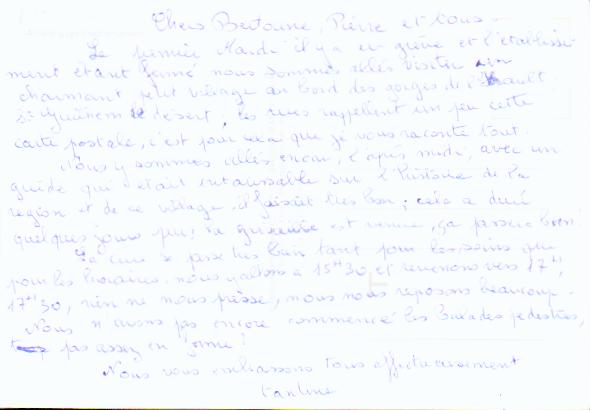 Chers Bertonne, Pierre et tous.
Le premier Mardi il y a eu grève et l'établisse-
ment étant fermé nous sommes allés visiter un
charmant petit village au bord des gorges de l'Hérault
St Guilhem le désert; les rues rappellent un peu cette
carte postale, c'est pour cela que je vous raconte tout.
Nous y sommes allés encore, l'après midi, avec un
guide qui était intarissable sur l'histoire de la
région et de ce village, il faisait très bon; cela a duré
quelques jours puis la grisaille est venue, ça passera bien
La cure se passe très bien tant pour les soins que
pour les horaires. nous y allons à 15H30 et revenons vers 17H,
17H30, rien ne nous presse, nous nous reposons beaucoup.
Nous n'avons pas encore commencé les balades pédestres,
pas assez en forme!
Nous vous embrassons tous affectueusement
tantine